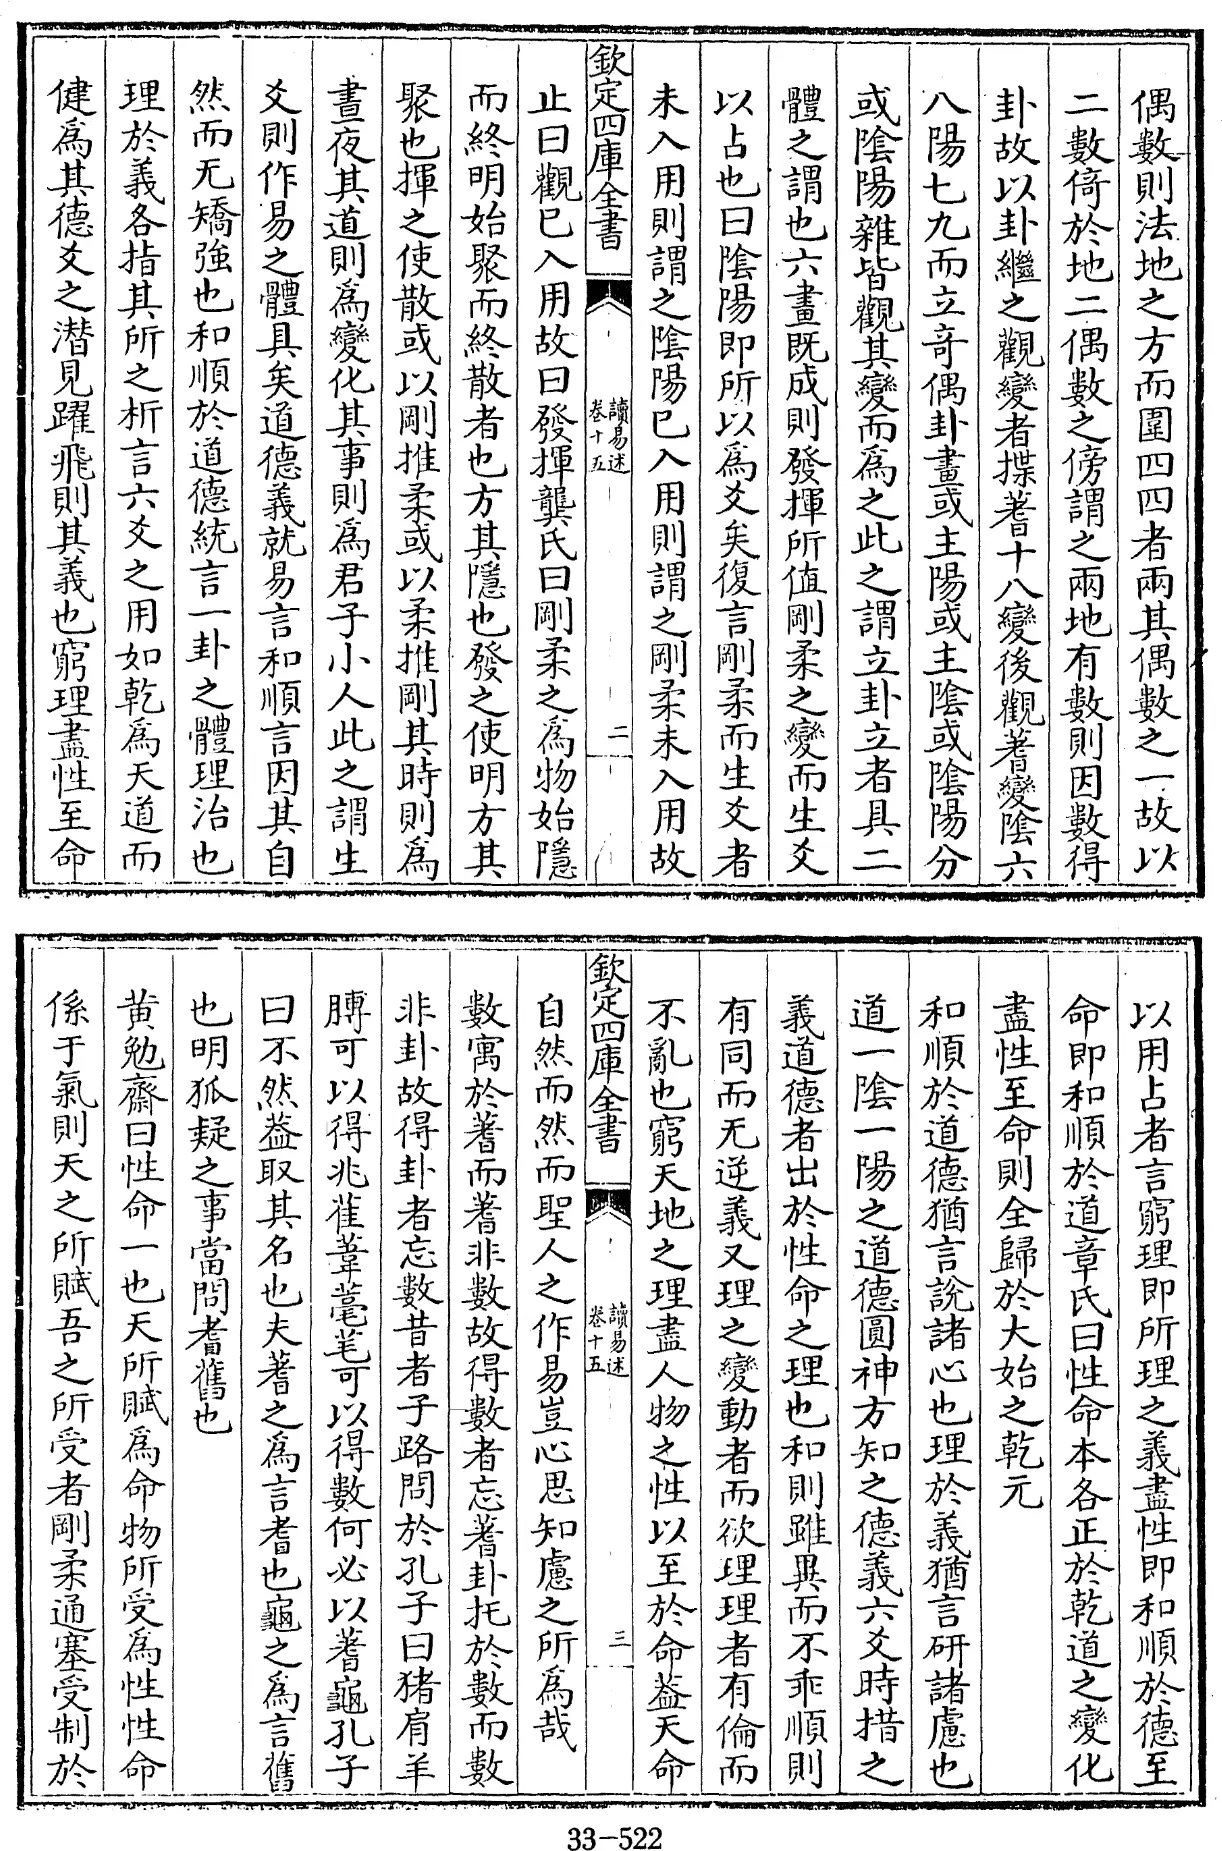 偶數則法地之方而圍四四者兩其偶數之一故以
二數倚於地二偶數之傍謂之兩地有數則因數得
卦故以卦繼之觀變者揲蓍十八變後觀蓍變陰六
八陽七九而立奇偶卦畫或主陽或主陰或陰陽分
或陰陽雜皆觀其變而為之此之謂立卦立者具二
體之謂也六畫既成則發揮所值剛柔之變而生爻
以占也曰陰陽即所以為爻矣復言剛柔而生爻者
未入用則謂之陰陽已入用則謂之剛柔未入用故
欽定四庫全書
讀易述
卷十五
二
止曰觀已入用故曰發揮龔氏曰剛柔之為物始隱
而終明始聚而終散者也方其隱也發之使明方其
聚也揮之使散或以剛推柔或以柔推剛其時則為
晝夜其道則為變化其事則為君子小人此之謂生
爻則作易之體具矣道德義就易言和順言因其自
然而无矯強也和順於道德統言一卦之體理治也
理於義各指其所之析言六爻之用如乾為天道而
健為其德爻之潛見躍飛則其義也窮理盡性至命
以用占者言窮理即所理之義盡性即和順於德至
命即和順於道章氏曰性命本各正於乾道之變化
盡性至命則全歸於大始之乾元
和順於道德猶言說諸心也理於義猶言研諸慮也
道一陰一陽之道德圓神方知之德義六爻時措之
義道德者出於性命之理也和則雖異而不乖順則
有同而无逆義又理之變動者而欲理理者有倫而
不亂也窮天地之理盡人物之性以至於命蓋天命
欽定四庫全書
讀易述
卷十五
三
自然而然而聖人之作易豈心思知慮之所為哉
數寓於蓍而蓍非數故得數者忘蓍卦托於數而數
非卦故得卦者忘數昔者子路問於孔子曰猪肩羊
膊可以得兆萑葦藁芼可以得數何必以蓍龜孔子
曰不然蓋取其名也夫蓍之為言耆也龜之為言舊
也明狐疑之事當問耆舊也
黃勉齋曰性命一也天所賦為命物所受為性性命
係于氣則天之所賦吾之所受者剛柔通塞受制於
33-522